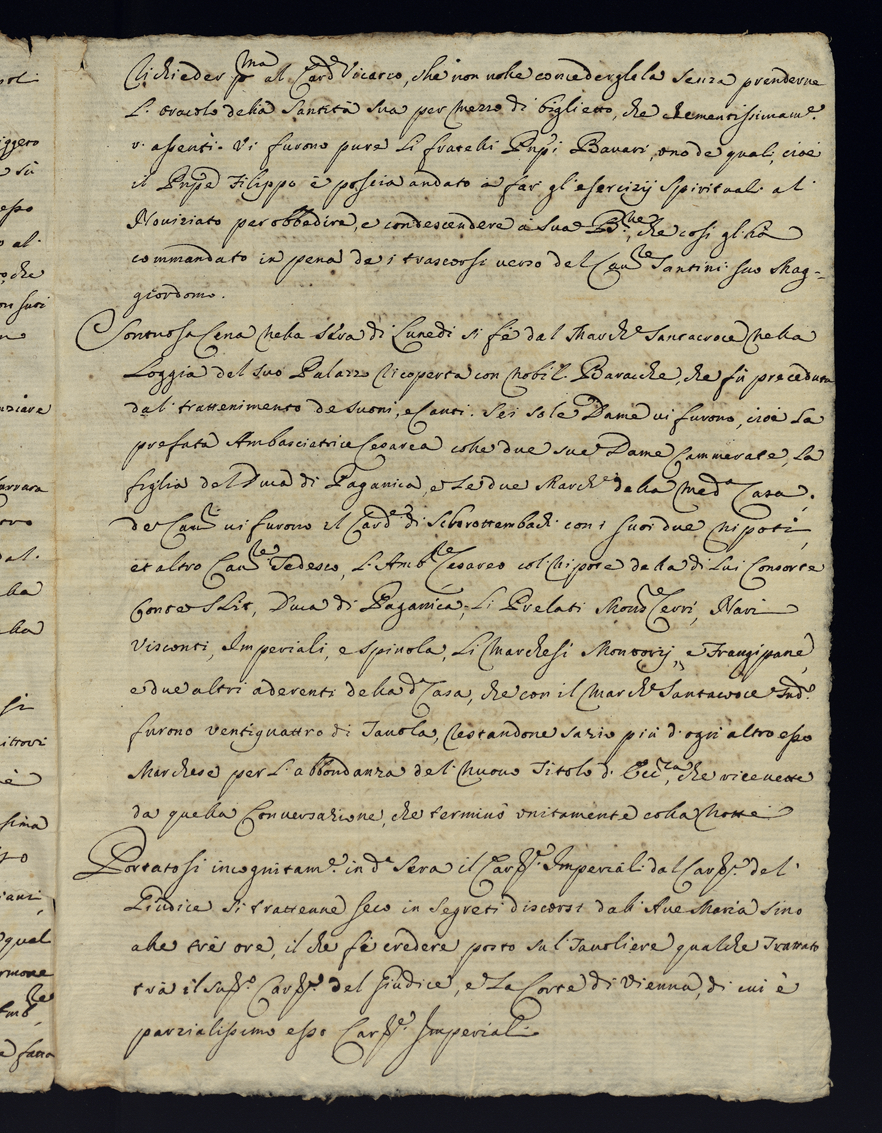 richieder pma al Card Vicario, che non volse concedergliela senza prenderne
l'oracolo della Santità Sua per mezzo di biglietto, che clementissimamte
v'assentì. Vi furono pure li fratelli Pnpi Bavari, uno de quali, cioè
il Pnpe Filippo è poscia andato à far gl'esercizij spirituali al
Noviziato per obbedire, e condescendere à Sua Bne, che così gl'hà
commandato in pena de i trascorsi verso del Caure Santini suo Mag-
giordomo.
Sontuosa Cena nella sera di Lunedì si fè dal Marche Santacroce nella
Loggia del suo Palazzo ricoperta con nobil. Baracche, che fù preceduta
dal trattenimento de suoni, e Canti. Sei sole Dame vi furono, cioè la
prefata Ambasciatrice Cesarea colle due sue Dame Cammerate, la
figlia del Duca di Paganica, e le due Marche della meda Casa.
de Cauri vi furono il Carde di Schrottembach con i suoi due nipoti,
et altro Caure Tedesco, l'Ambre Cesareo col nipote della di lui Consorte
Conte Slic, Duca di Paganica, li Prelati Monsri Cerri, Nari
Visconti, Imperiali, e Spinola, li Marchesi Montorij, e Frangipane,
e due altri aderenti della da Casa, che con il Marche Santacroce sudo
furono ventiquattro di Tavola, restandone sazio più d'ogni altro esso
Marchese per l'abbondanza del nuovo Titolo d'Ecca, che ricevette
da quella Conversazione, che terminò unitamente colla notte
Portatosi incognitamte in da sera il Carle Imperiali dal Carle del
Giudice si trattenne seco in segreti discorsi dall'Ave Maria sino
alle trè ore, il che fè credere posto sul Tavoliere qualche Trattato
trà il sudo Carle del Giudice, e la Corte di Vienna, di cui è
parzialissimo esso Carle Imperiali